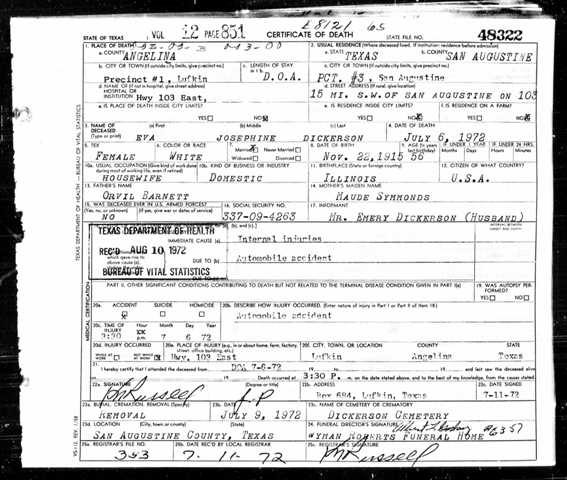 STATE OF TEXAS VOL 12 PAGE 851 CERTIFICATE OF DEATH 48322
1. PLACE OF DEATH 2. USUAL RESIDENCE (Where deceased lived. If institution: residence before admission)
a. COUNTY ANGELINA a. STATE TEXAS b. COUNTY SAN AUGUSTINE
b. CITY OR TOWN (If outside city limits, give precinct no.) c. LENGTH OF STAY c. CITY OR TOWN (If outside city limits, give precinct no.)
Precinct #1, Lufkin D.O.A. PCT. #3, San Augustine
d. NAME OF (If not in hospital, give street address) HOSPITAL OR INSTITUTION d. STREET ADDRESS (If rural, give location)
Hwy 103 East, 15 MI. S.W. OF SAN AUGUSTINE ON 103
e. IS PLACE OF DEATH INSIDE CITY LIMITS? e. IS RESIDENCE INSIDE CITY LIMITS? f. IS RESIDENCE ON A FARM?
YES NO YES NO YES NO
3. NAME OF DECEASED (Type or print) (a) First (b) Middle (c) Last 4. DATE OF DEATH
EVA JOSEPHINE DICKERSON JULY 6, 1972
5. SEX 6. COLOR OR RACE 7. Married Never Married Widowed Divorced 8. DATE OF BIRTH 9. AGE IF UNDER 1 YEAR IF UNDER 24 HRS.
FEMALE WHITE NOV. 22, 1915 56
10a. USUAL OCCUPATION (Give kind of work done during most of working life, even if retired) 10b. KIND OF BUSINESS OR INDUSTRY 11. BIRTHPLACE (State or foreign country) 12. CITIZEN OF WHAT COUNTRY?
HOUSEWIFE DOMESTIC ILLINOIS U.S.A.
13. FATHER'S NAME 14. MOTHER'S MAIDEN NAME
ORVIL BARNETT MAUDE SYMMONDS
15. WAS DECEASED EVER IN U.S. ARMED FORCES? 16. SOCIAL SECURITY NO. 17. INFORMANT
NO 337-09-4263 MR. EMERY DICKERSON (HUSBAND)
TEXAS DEPARTMENT OF HEALTH
IMMEDIATE CAUSE (a) Internal injuries
REC'D AUG 10 1972
DUE TO (b) Automobile accident
BUREAU OF VITAL STATISTICS
DUE TO (c)
PART II. OTHER SIGNIFICANT CONDITIONS CONTRIBUTING TO DEATH BUT NOT RELATED TO THE TERMINAL DISEASE CONDITION GIVEN IN PART I(a) 19. WAS AUTOPSY PERFORMED?
YES NO
20a. ACCIDENT SUICIDE HOMICIDE 20b. DESCRIBE HOW INJURY OCCURRED. (Enter nature of injury in Part I or Part II of item 18)
Automobile accident
20c. TIME OF INJURY Hour Month Day Year
3:30 7 6 72
20d. INJURY OCCURRED 20e. PLACE OF INJURY (e.g., in or about home, farm, factory, street, office building, etc.) 20f. CITY, TOWN, OR LOCATION COUNTY STATE
Hwy. 103 East Lufkin Angelina Texas
21. I hereby certify that I attended the deceased from DOA 7-6-72
Death occurred at 3:30 P. m. on the date stated above, and to the best of my knowledge, from the causes stated
22a. SIGNATURE 22b. ADDRESS 22c. DATE SIGNED
J.P. Box 684, Lufkin, Texas 7-11-72
23a. BURIAL, CREMATION, REMOVAL (Specify) 23b. DATE 23c. NAME OF CEMETERY OR CREMATORY
REMOVAL JULY 9, 1972 DICKERSON CEMETERY
23d. LOCATION (City, town, or county) (State) 24. FUNERAL DIRECTOR'S SIGNATURE
SAN AUGUSTINE COUNTY, TEXAS WYMAN ROBERTS FUNERAL HOME #6357
25a. REGISTRAR'S FILE NO. 25b. DATE REC'D BY LOCAL REGISTRAR 25c. REGISTRAR'S SIGNATURE
353 7-11-72
TEXAS DEPARTMENT OF HEALTH — BUREAU OF VITAL STATISTICS
MEDICAL CERTIFICATION